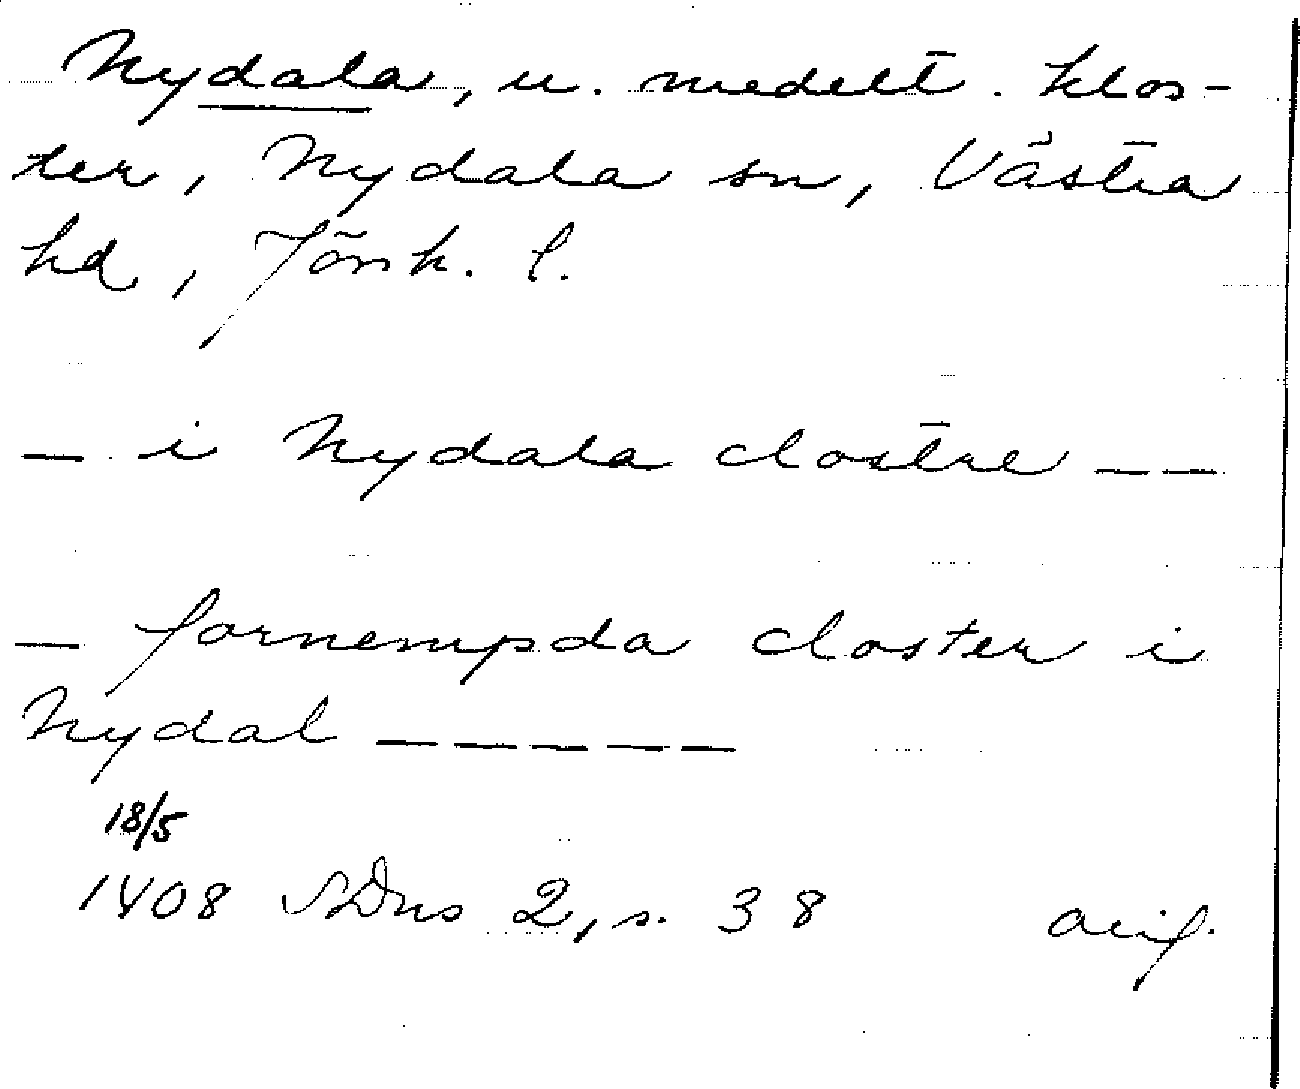 Nydala, u. medelt. klos-
ter, Nydala sn, Västra
hd, Jönk. l.
— i Nydala clostre — —
— fornempda closter i
Nydal — — — — —
18/5
1408 SDns 2, s. 38